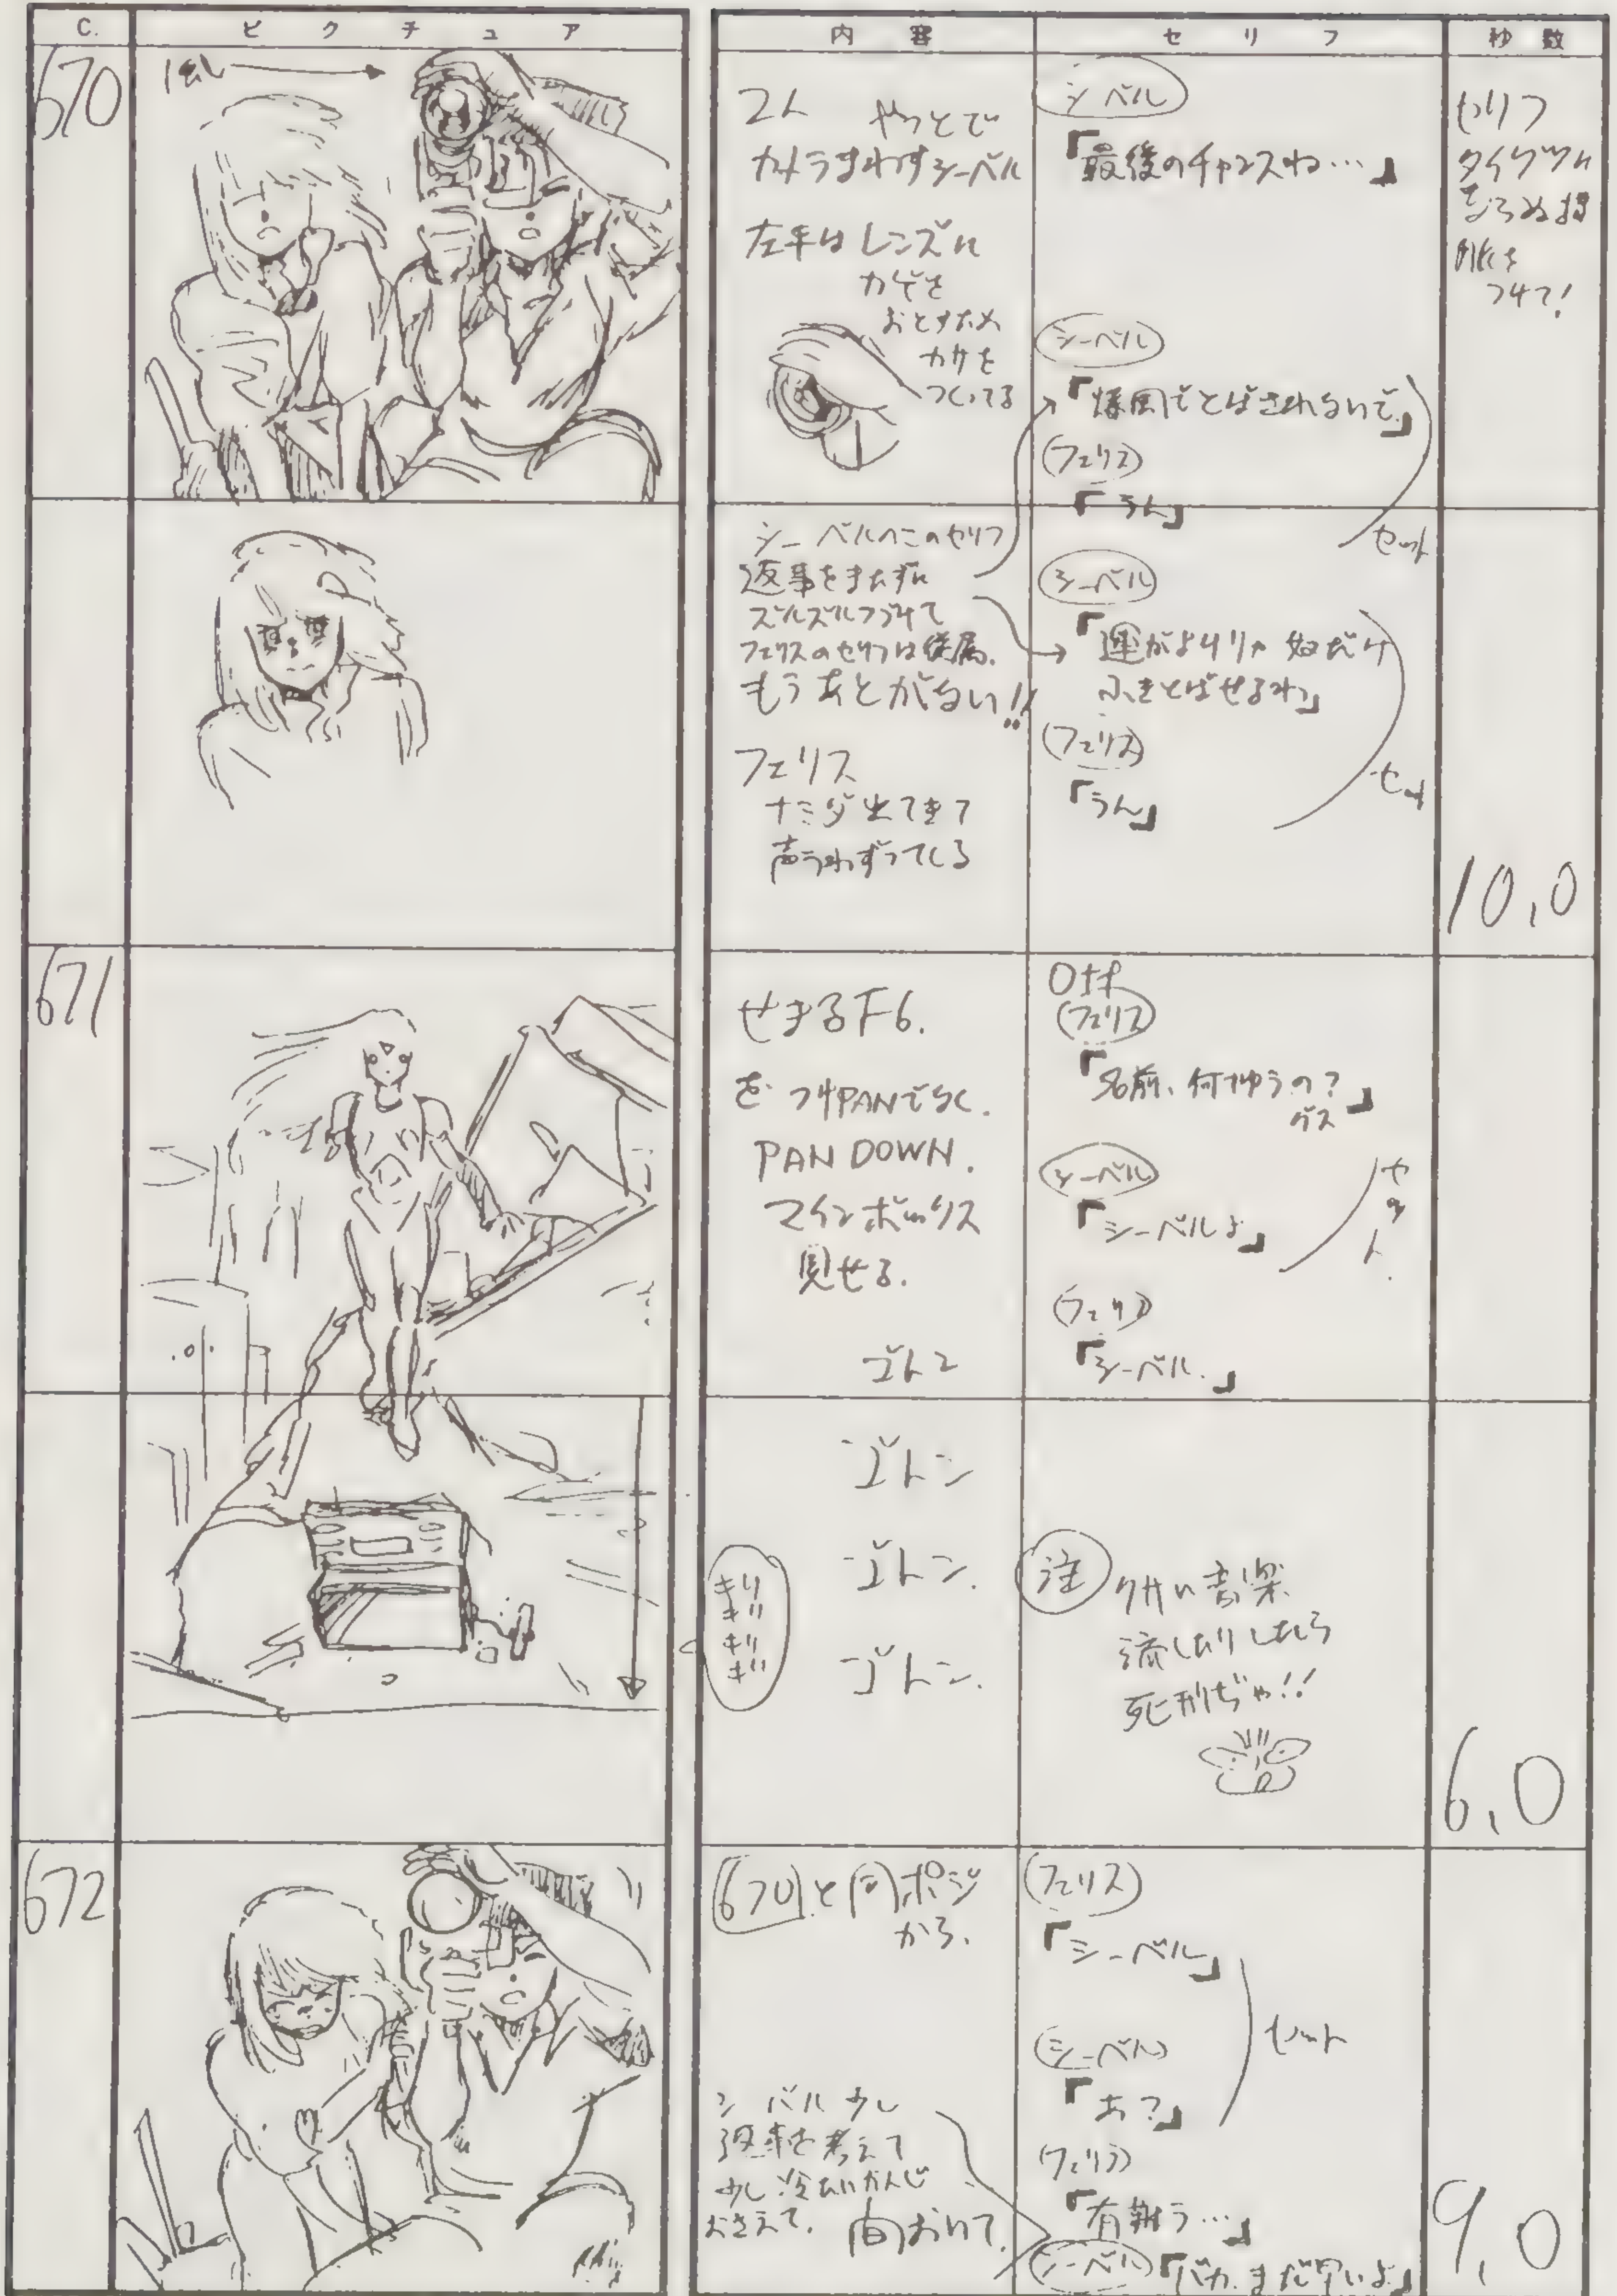 C.
ピクチュア
内容
セリフ
秒数
670
2人
やっとで
カメラまわすシーベル
左手はレンズに
カゲを
おとすため
カサを
つくってる
シーベル
「最後のチャンスね…」
シーベル
「爆風でとばされないで」
(フェリス)
「うん」
セット
セリフ
タイヘツに
ならぬ様
気を
つけて!
シーベルのこのセリフ
返事をまたずに
ズルズルつづけて
フェリスのセリフは従属.
もうあとがない!!
フェリス
ナミダ出てきて
声うわずってしる
シーベル
「運がよけりゃ奴だけ
ふきとばせるわ」
(フェリス)
「うん」
セット
10,0
671
せまるF6.
を つけPANでなく.
PAN DOWN.
マインボックス
見せる.
ゴトン
Off
(フェリス)
「名前、何てゆうの?」
シーベル
「シーベルよ」
セット.
(フェリス)
「シーベル.」
ゴトン
ゴトン.
ゴトン.
キリ
キリ
キリ
キリ
注
クサい音楽
流したりしたら
死刑ぢゃ!!
6,0
672
670と同ポジ
から.
シーベル少し
返事を考えて
少し冷たいかんじ
おさえて. 間おいて.
(フェリス)
「シーベル」
(シーベル)
「あ?」
セット
(フェリス)
「有難う…」
シーベル「バカ.まだ早いよ」
9,0